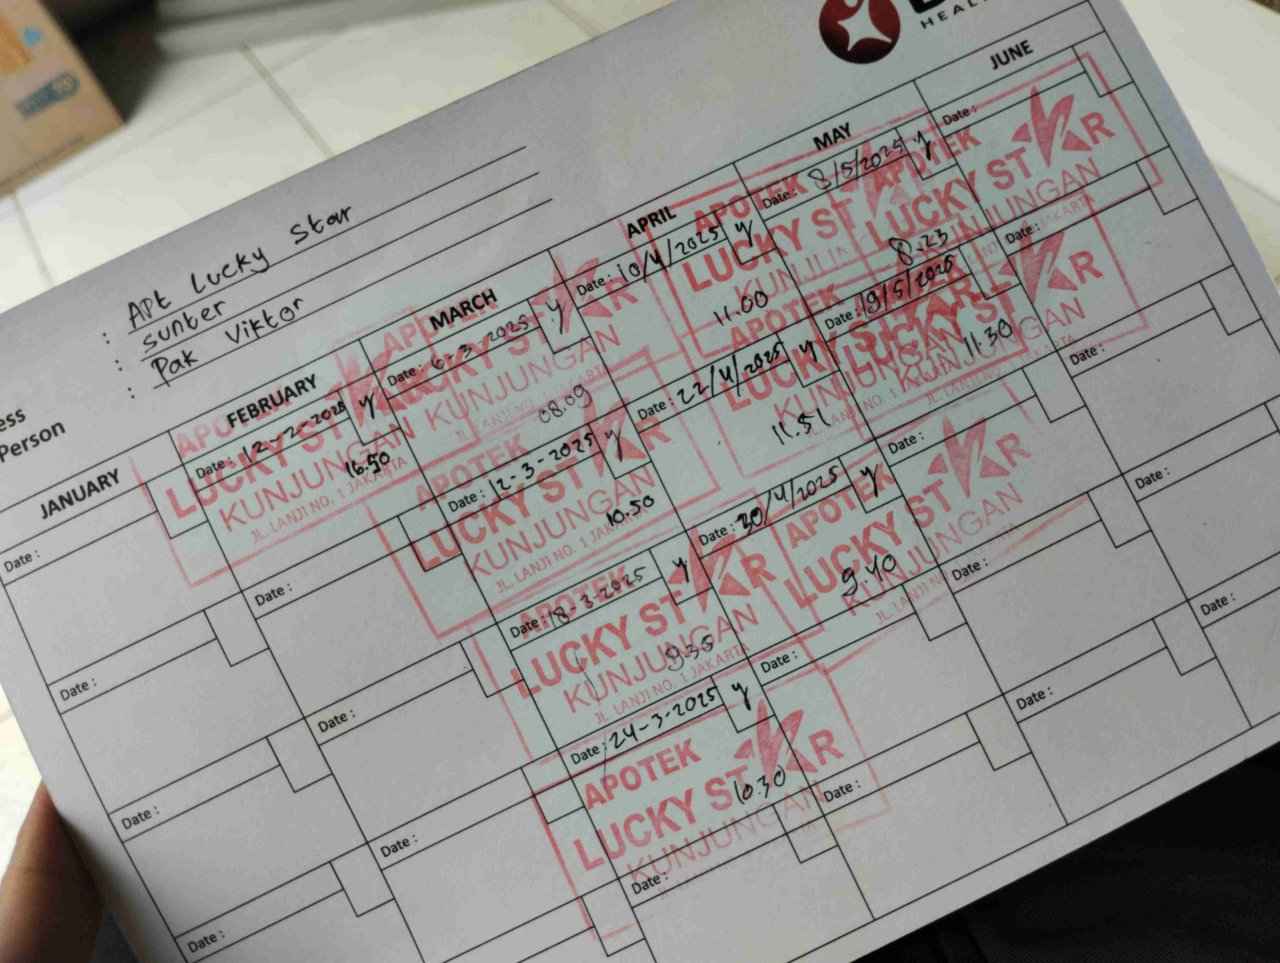 HEAL
: Apt Lucky Star
ess : sunter
Person : Pak Viktor
JANUARY
Date :
Date :
Date :
Date :
FEBRUARY
Date : 12-2-2025 y
16.50
APOTEK
LUCKY STAR
KUNJUNGAN
JL. LANJI NO. 1 JAKARTA
Date :
Date :
Date :
MARCH
Date : 6-3-2025 y
08.09
LUCKY STAR
KUNJUNGAN
Date : 12-3-2025 y
10.50
APOTEK
LUCKY STAR
KUNJUNGAN
JL. LANJI NO. 1 JAKARTA
Date : 18-3-2025 y
9.35
APOTEK
LUCKY STAR
KUNJUNGAN
JL. LANJI NO. 1 JAKARTA
Date : 24-3-2025 y
10.30
APOTEK
LUCKY STAR
KUNJUNGAN
Date :
APRIL
Date : 10/4/2025 y
11.00
APOTEK
LUCKY ST
Date : 22/4/2025 y
11.51
APOTEK
LUCKY
Date : 30/4/2025 y
9.40
APOTEK
LUCKY STAR
KUNJUNGAN
Date :
Date :
MAY
Date : 8/5/2025 y
8.23
APOTEK
LUCKY STAR
KUNJUNGAN
Date : 19/5/2025
11.30
KUNJUNGAN
Date :
Date :
Date :
JUNE
Date :
Date :
Date :
Date :
Date :